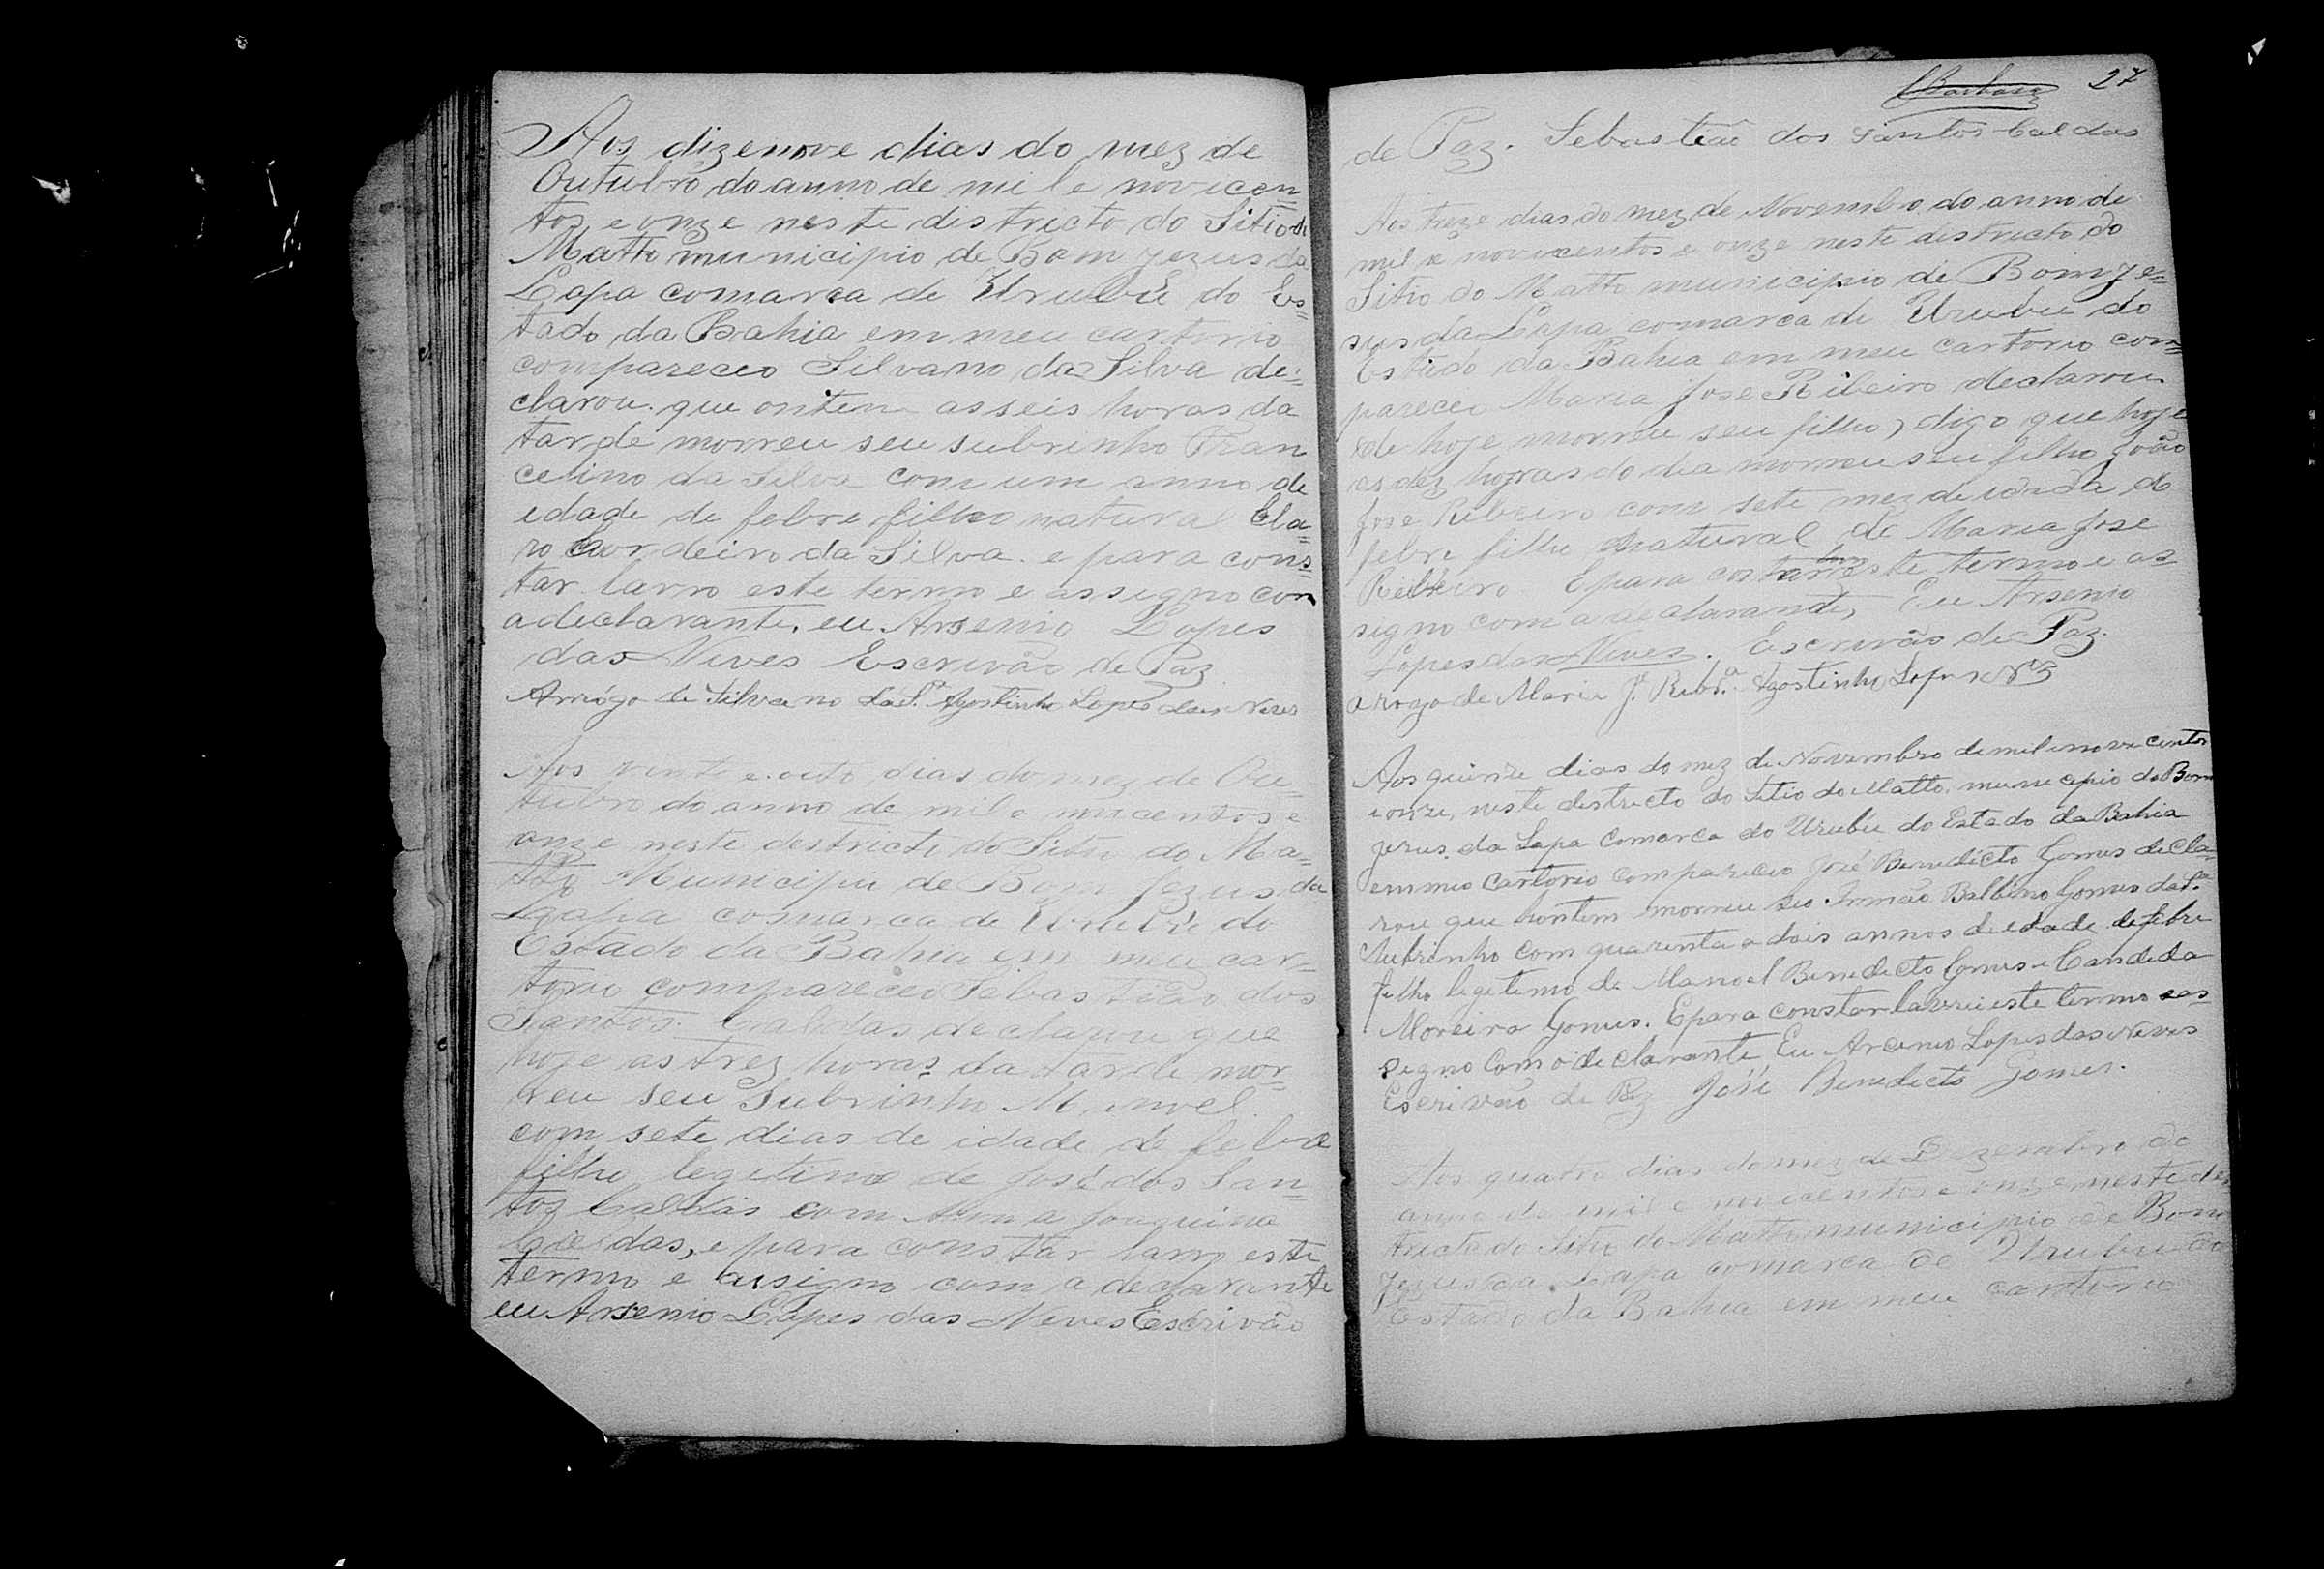 Aos dizenove dias do mez de
Outubro do anno de mil e novicen=
tos e onze neste districto do Sitio do
Matto municipio de Bom Jezus da
Lapa comarca de Urubú do Es=
tado da Bahia em meu cartorio
compareceo Silvano da Silva de=
clarou que ontem as seis horas da
tarde morreu seu subrinho Fran
celino da Silva com um anno de
idade de febre filho natural Cla=
ro Cordeiro da Silva. e para cons=
tar lavro este termo e assigno con
a declarante, eu Arsenio Lopes
das Neves Escrivão de Paz
Arrôgo de Silvano da Sª Agostinho Lopes das Neves
Aos vinte e oito dias do mez de Ou=
tubro do anno de mil e nuicentos e
onze neste destricto do Sitio do Ma=
tto Municipio de Bom Jezus da
Lapa comarca de Urubú do
Estado da Bahia em meu car=
torio compareceo Sebastião dos
Santos Caldas declarou que
hoje as trez horas da tarde mor=
reu seu Subrinho Manoel
com sete dias de idade de febre
filho legitimo de José dos San=
tos Caldas com Anna Joaquina
das, e para constar lavro este
termo e asigno com a declarante
eu Arsenio Lopes das Neves Escrivão
Barbosa 27
de Paz. Sebastião dos Santos Caldas
Aos treze dias do mez de Novembro do anno de
mil e novicentos e onze neste districto do
Sitio do Matto municipio de Bom Je=
sus da Lapa comarca de Urubú do
Estado da Bahia em meu cartorio com=
pareceo Maria Jose Ribeiro declarou
de hoje morreu seu filho, digo que hoje
as dez horas do dia morreu seu filho João
Jose Ribeiro com sete mez de idade de
febre filho natural de Maria Jose
Ribeiro E para constar lavro este termo e as
signo com a declarante, Eu Arsenio
Lopes das Neves. Escrivão de Paz.
a rogo de Maria J. Ribrª. Agostinho Lopes Nes
Aos quinze dias do mez de Novembro de mil e nove centos
e onze, neste destricto do Sitio do Matto, municipio do Bom
Jezus da Lapa Comarca do Urubú do Estado da Bahia
em meo Cartorio compareceo José Benedicto Gomes decla=
rou que hontem morreu seo Irmão Balbino Gomes da Sª
Subrinho com quarenta e dois annos de edade de febre
filho legitimo de Manoel Benedicto Gomes e Candida
Moreira Gomes. E para constar lavrei este termo e as
signo Com o declarante Eu Arcenio Lopes das Neves
Escrivão de Paz José Benedicto Gomes.
Aos quatro dias do mez de Dezembro do
anno de mil e novicentos e onze neste des
tricto do Sitio do Matto municipio de Bom
Jezus da Lapa comarca de Urubú do
Estado da Bahia em meu cartorio